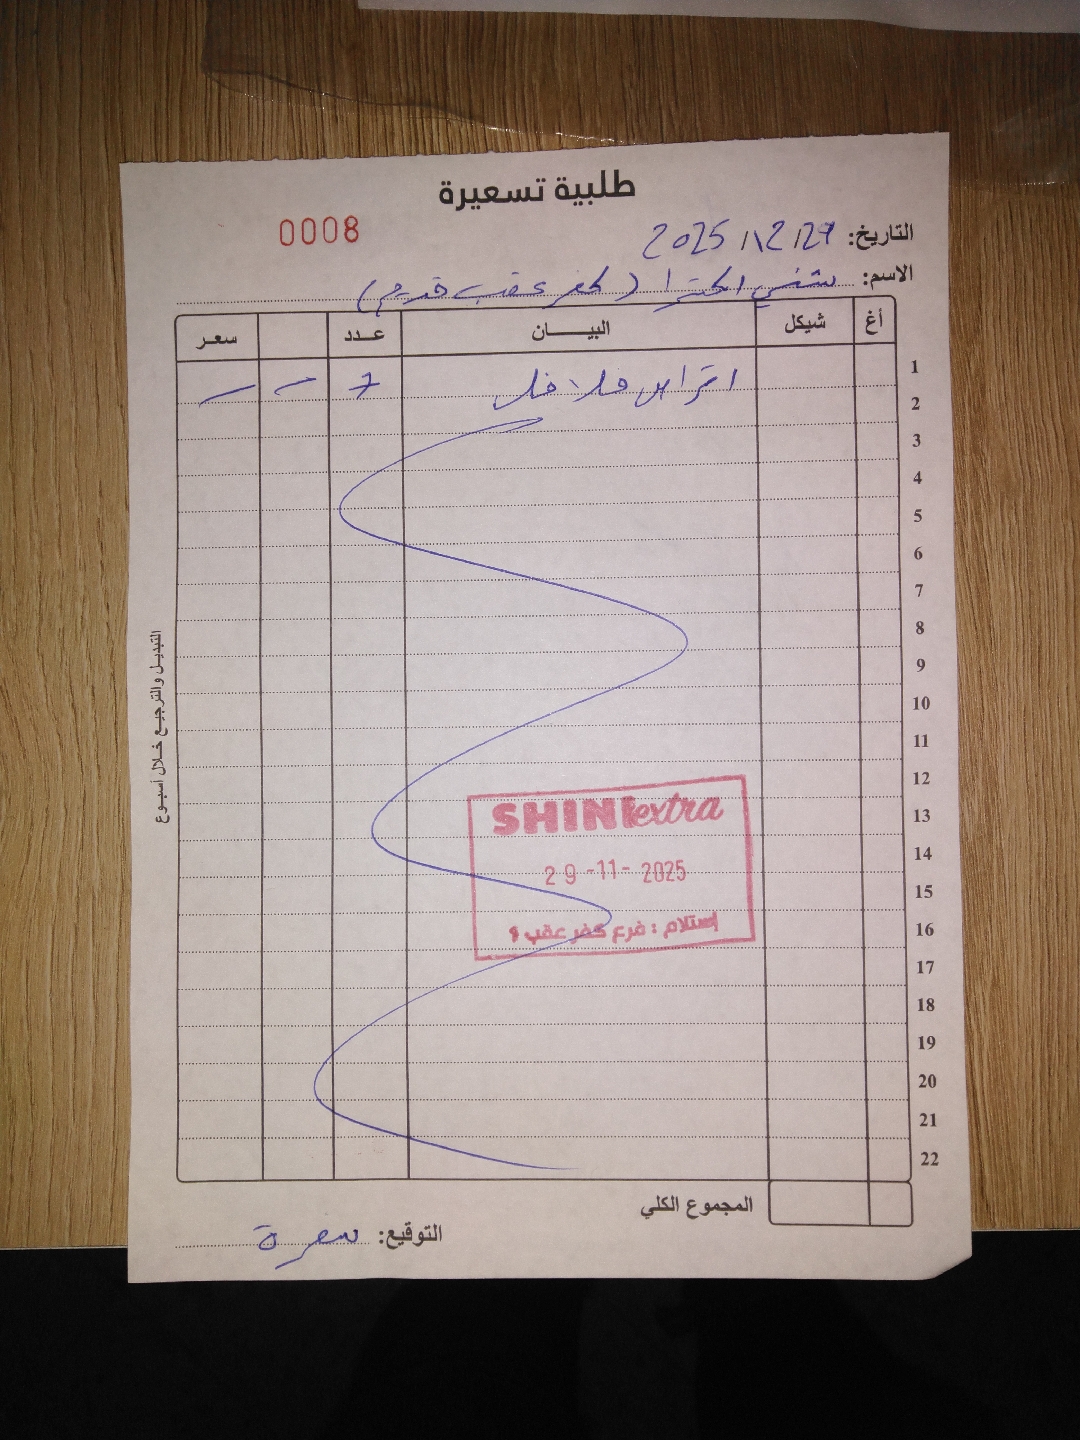 طلبية تسعيرة
0008
التاريخ: 2025
الاسم: شني اكسترا (كفر عقب قديم)
أغ شيكل البيــــان عـدد سعـر
1
اقراص فلافل 7 — —
2
3
4
5
6
7
8
9
10
11
12
13
14
15
16
17
18
19
20
21
22
SHINI extra
29-11-2025
إستلام : فرع كفر عقب
المجموع الكلي
التوقيع:
التبديل والترجيع خلال أسبوع